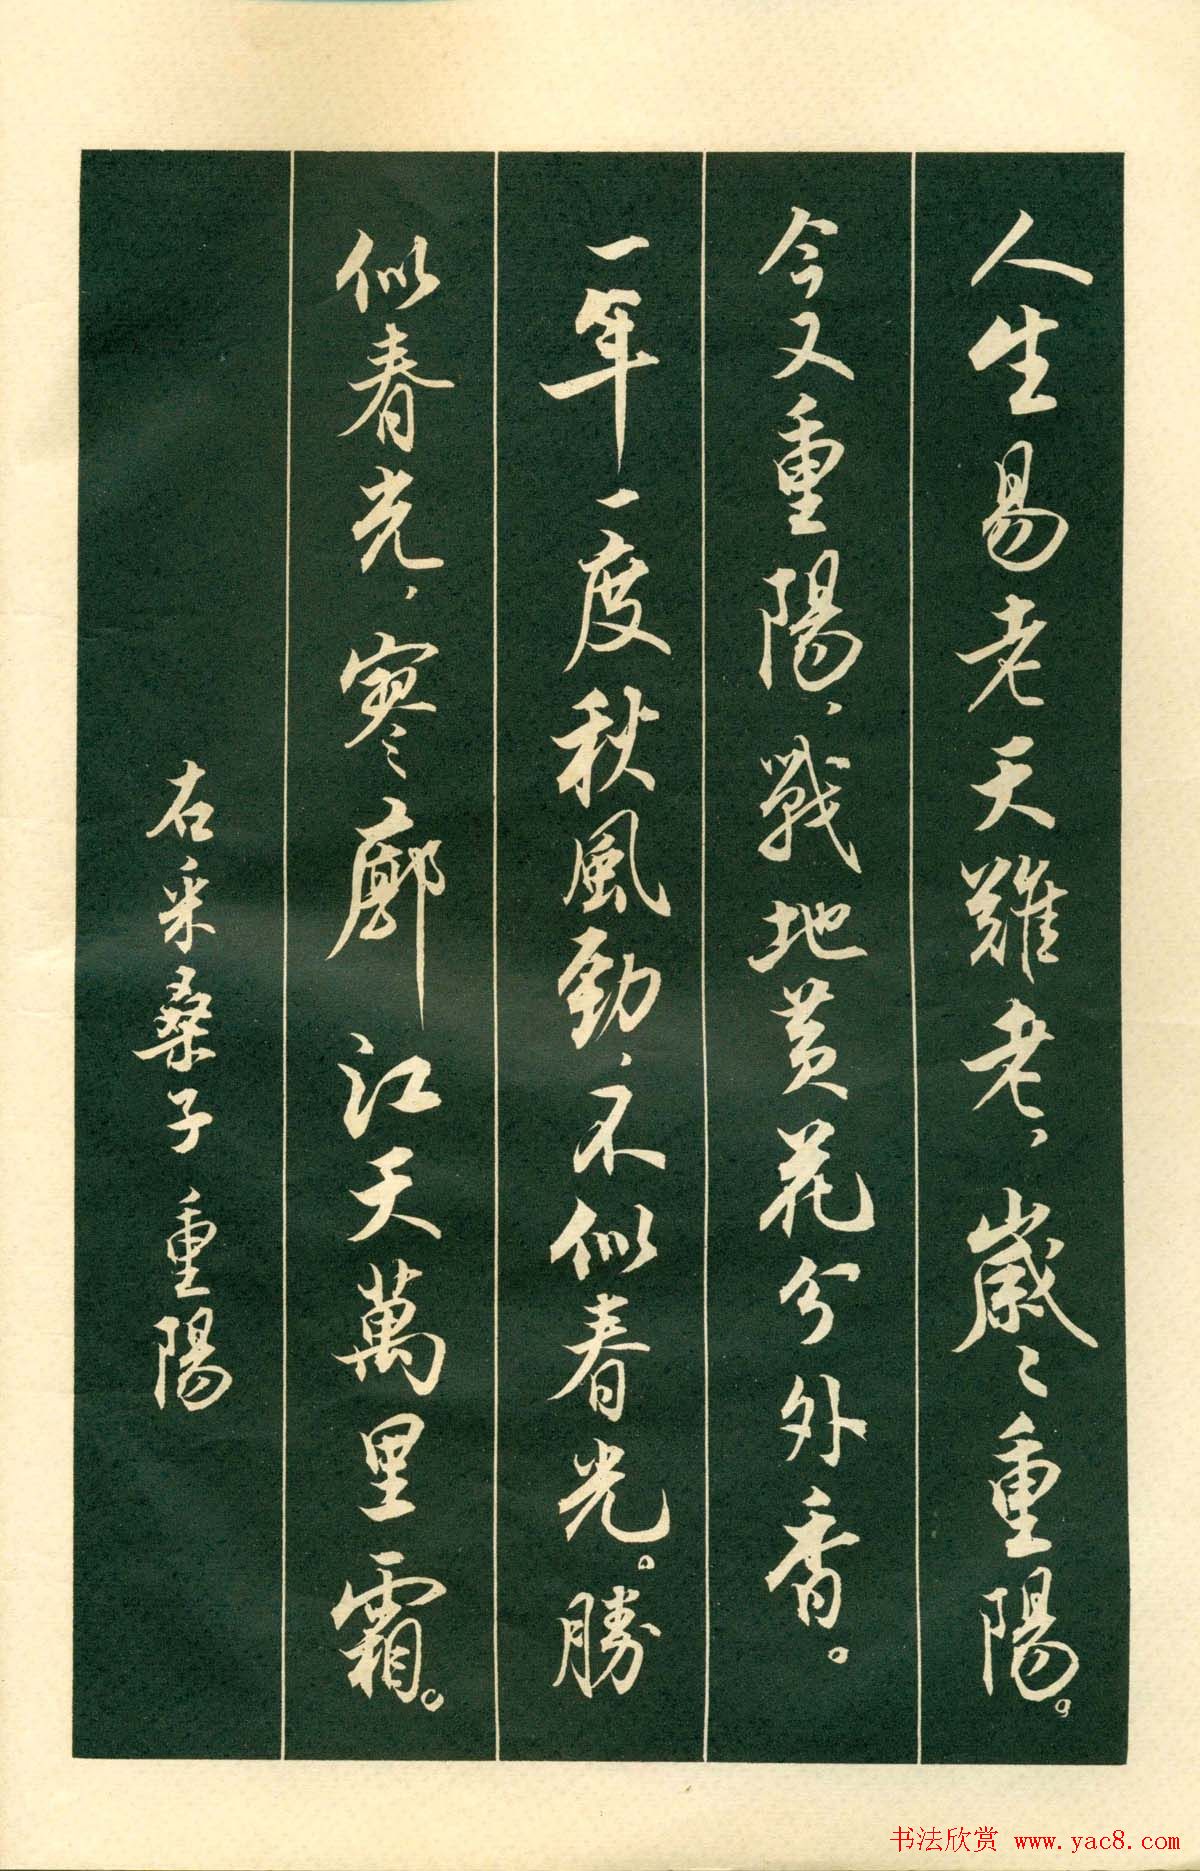 人生易老天難老，歲〻重陽。
今又重陽，戰地黃花分外香。
一年一度秋風勁，不似春光。勝
似春光，寥廓江天萬里霜。
右采桑子 重陽
书法欣赏 www.yac8.com